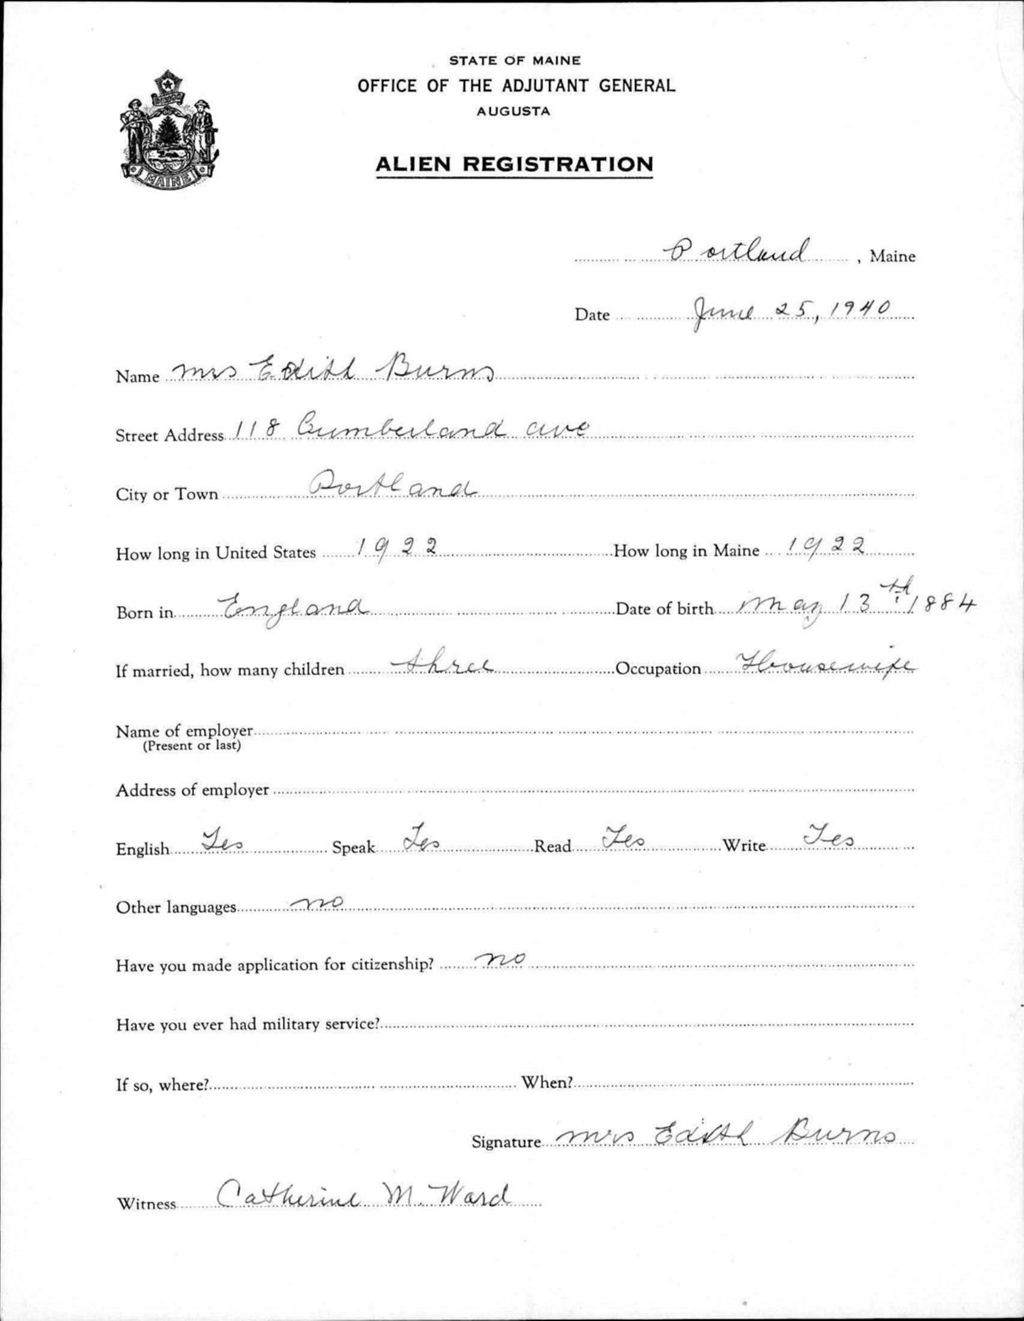 STATE OF MAINE
OFFICE OF THE ADJUTANT GENERAL
AUGUSTA
ALIEN REGISTRATION
MAINE
Portland, Maine
Date June 25, 1940
Name Mrs Edith Burns
Street Address 118 Cumberland ave
City or Town Portland
How long in United States 1922 How long in Maine 1922
Born in England Date of birth May 13th 1884
If married, how many children three Occupation Housewife
Name of employer
(Present or last)
Address of employer
English Yes Speak Yes Read Yes Write Yes
Other languages no
Have you made application for citizenship? no
Have you ever had military service?
If so, where? When?
Signature Mrs Edith Burns
Witness Catherine M. Ward